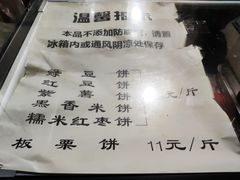 温馨提示
本品不添加防腐剂,请置
冰箱内或通风阴凉处保存
绿豆饼
红豆饼
紫薯饼
黑香米饼
糯米红枣饼
元/斤
板栗饼 11元/斤